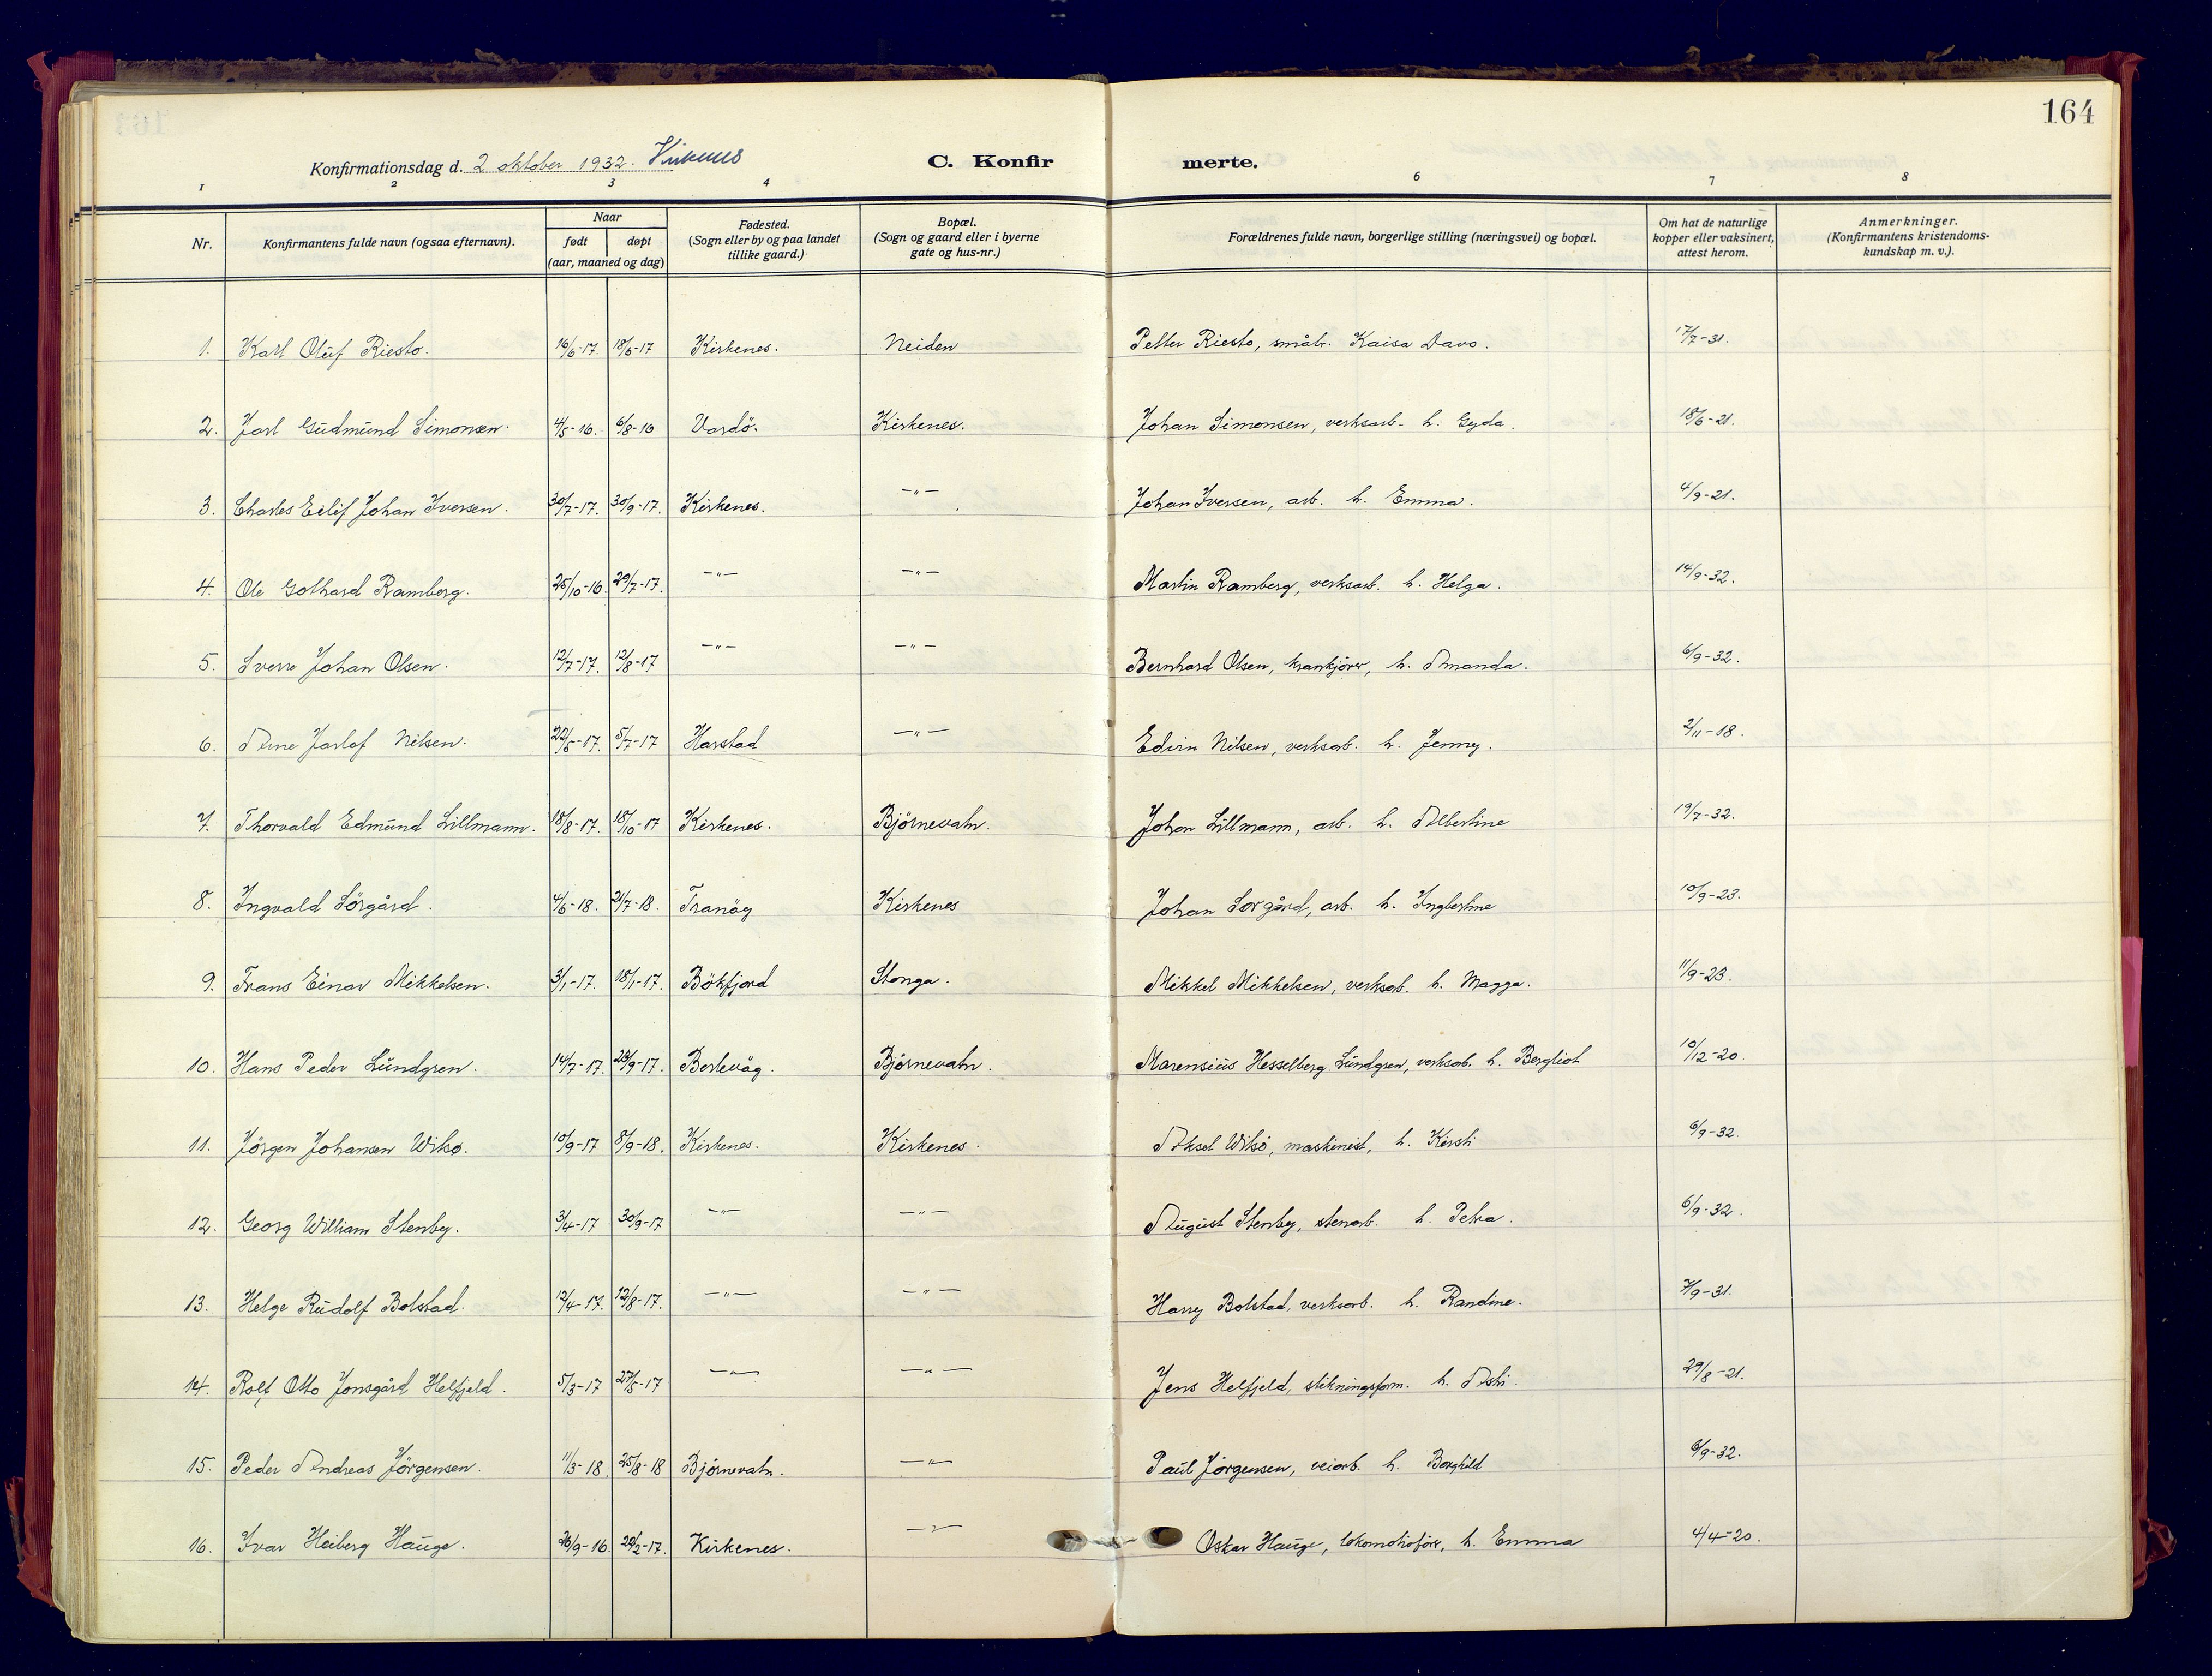 164
Konfirmationsdag d. 2 oktober 1932. Kirkenes
C. Konfir merte.
1 2 3 4 6 7 8
Nr. Konfirmantens fulde navn (ogsaa efternavn). Naar født døpt (aar, maaned og dag) Fødested. (Sogn eller by og paa landet tillike gaard.) Bopæl. (Sogn og gaard eller i byerne gate og hus-nr.) Forældrenes fulde navn, borgerlige stilling (næringsvei) og bopæl. Om hat de naturlige kopper eller vaksinert, attest herom. Anmerkninger. (Konfirmantens kristendoms-kundskap m. v.).
1. Karl Oluf Riesto. 16/6-17. 18/6-17 Kirkenes. Neiden Petter Riesto, småbr. Kaisa Davo. 17/7-31.
2. Jarl Gudmund Simonsen. 4/5-16. 6/8-16 Vardö. Kirkenes. Johan Simonsen, verksarb. h. Gyda. 18/6-21.
3. Charles Eilif Johan Iversen. 30/7-17. 30/9-17. Kirkenes. -"- Johan Iversen, arb. h. Emma. 4/9-21.
4. Ole Gothard Ramberg. 25/10-16. 29/7-17. -"- -"- Martin Ramberg, verksarb. h. Helga. 14/9-32.
5. Sverre Johan Olsen. 12/7-17. 12/8-17 -"- -"- Bernhard Olsen, krankjörer, h. Amanda. 6/9-32.
6. Arne Jarlof Nilsen. 22/5-17. 5/7-17 Harstad -"- Edvin Nilsen, verksarb. h. Jenny. 2/11-18.
7. Thorvald Edmund Lillmann. 18/8-17. 18/10-17 Kirkenes. Björnevatn. Johan Lillmann, arb. h. Albertine 19/7-32.
8. Ingvald Sörgård. 4/6-18. 21/7-18. Tranöy Kirkenes Johan Sörgård, arb. h. Ingbertine 10/9-23.
9. Frans Einar Mikkelsen. 3/1-17. 18/1-17. Bökfjord Stonga. Mikkel Mikkelsen, verksarb. h. Magga. 11/9-23.
10. Hans Peder Lundgren. 14/7-17. 23/9-17. Berlevåg. Björnevatn. Marensius Hesselberg Lundgren, verksarb. h. Bergliot 10/12-20.
11. Jörgen Johansen Wilsö. 10/9-17 8/9-18. Kirkenes. Kirkenes. Aksel Wilsö, maskinist, h. Kirsti 6/9-32.
12. Georg William Stenby. 3/4-17 30/9-17 -"- -"- August Stenby, stenarb. h. Petra. 6/9-32.
13. Helge Rudolf Bolstad. 12/4-17. 12/8-17. -"- -"- Harry Bolstad, verksarb. h. Randine. 7/9-31.
14. Rolf Otto Jonsgård Helfjeld. 5/3-17 27/5-17 -"- -"- Jens Helfjeld, stikningsform. h. Asti. 29/8-21.
15. Peder Andreas Jörgensen. 11/3-18. 25/8-18 Björnevatn. -"- Paul Jörgensen, veiarb. h. Borghild 6/9-32.
16. Ivar Heiberg Hauge. 26/9-16. 24/2-17. Kirkenes. -"- Oskar Hauge, lokomotivförer, h. Emma 4/4-20.